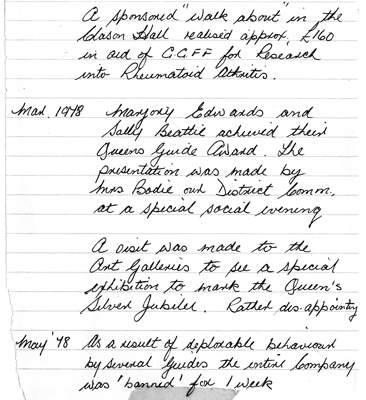 A sponsored "walk about" in the
Eason Hall realised approx. £160
in aid of C.C.F.F for Research
into Rheumatoid Arthritis.
Mar. 1978 Marjory Edwards and
Sally Beattie achieved their
Queens Guide Award. The
presentation was made by
Mrs Bodie our District Comm.
at a special social evening
A visit was made to the
Art Galleries to see a special
exhibition to mark the Queen's
Silver Jubilee. Rather dis-appointing
May '78 As a result of deplorable behaviour
by several Guides the entire Company
was 'banned' for 1 week